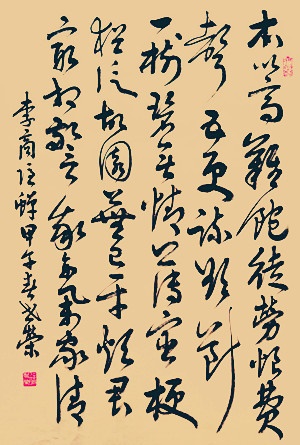 本以高難飽徒勞恨費
聲五更疏欲斷
一樹碧無情薄宦梗
猶泛故園蕪已平煩君
最相警我亦舉家清
李商隱蟬甲午春榮